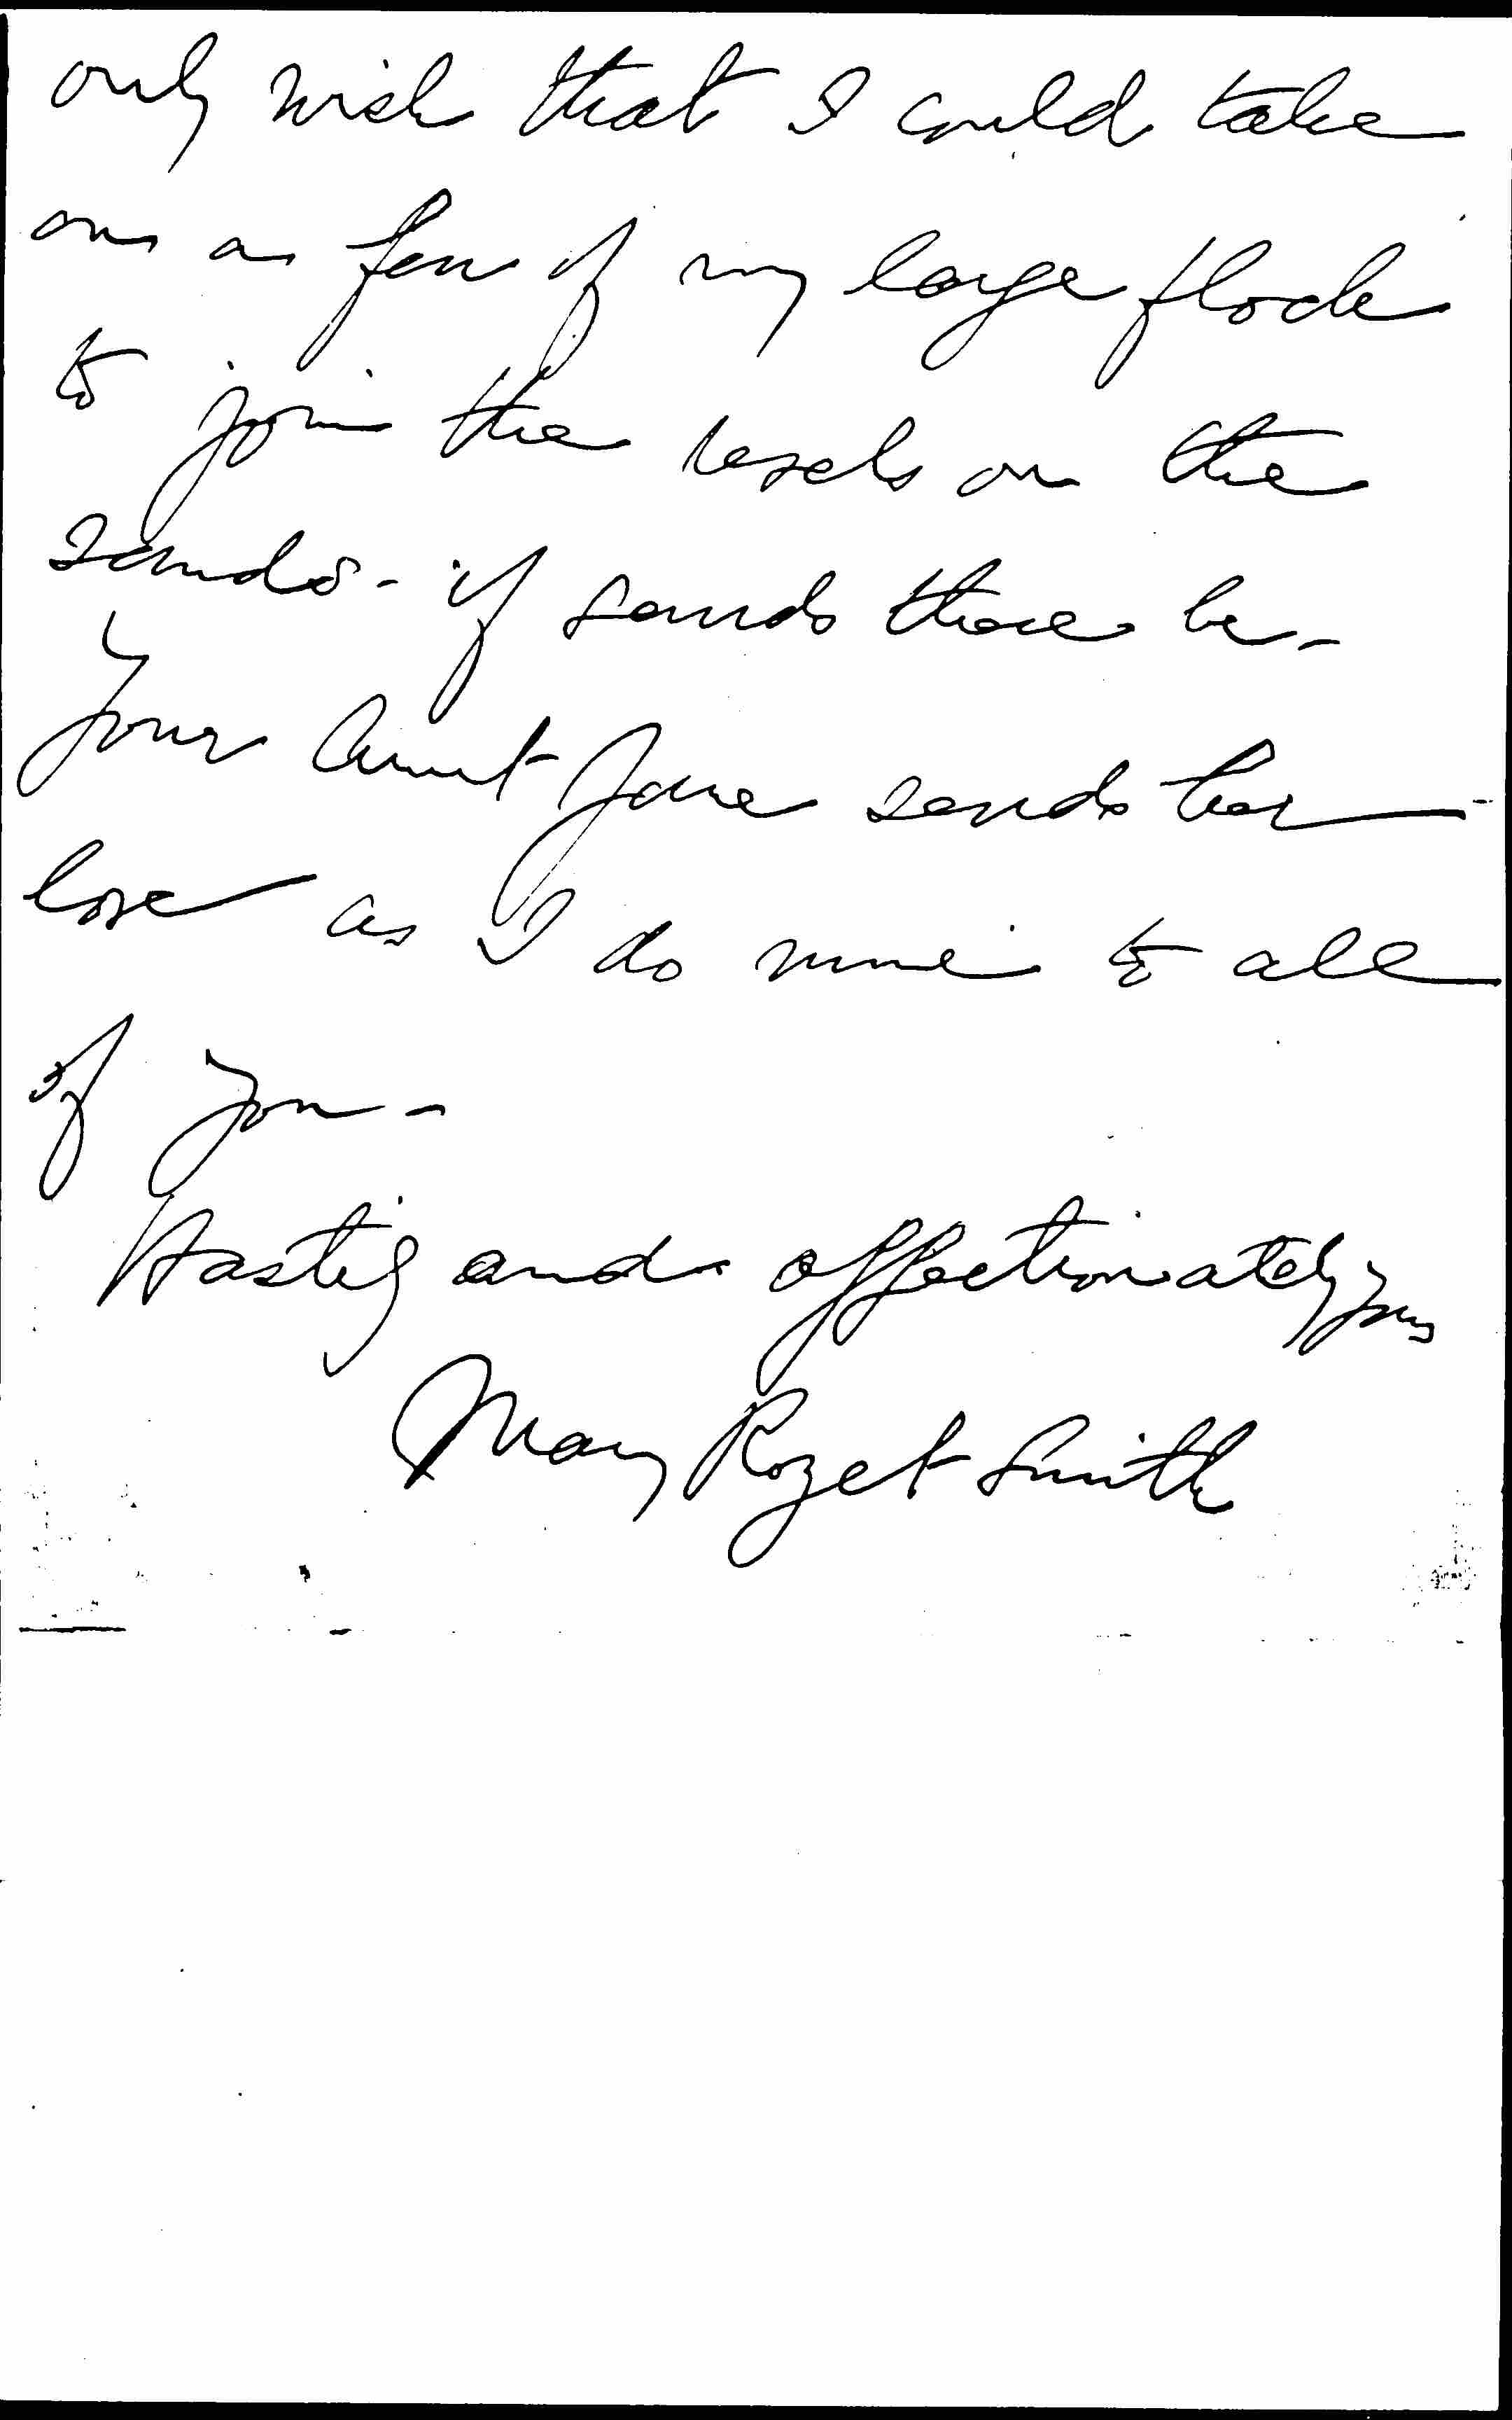 only wish that I could take
on a few of my large flock
to join the on the
sands - if sands there be -
Your Aunt Jane sends her
love as I do mine to all
of you -
Hastily and affectionately yrs
Mary Rozet Smith